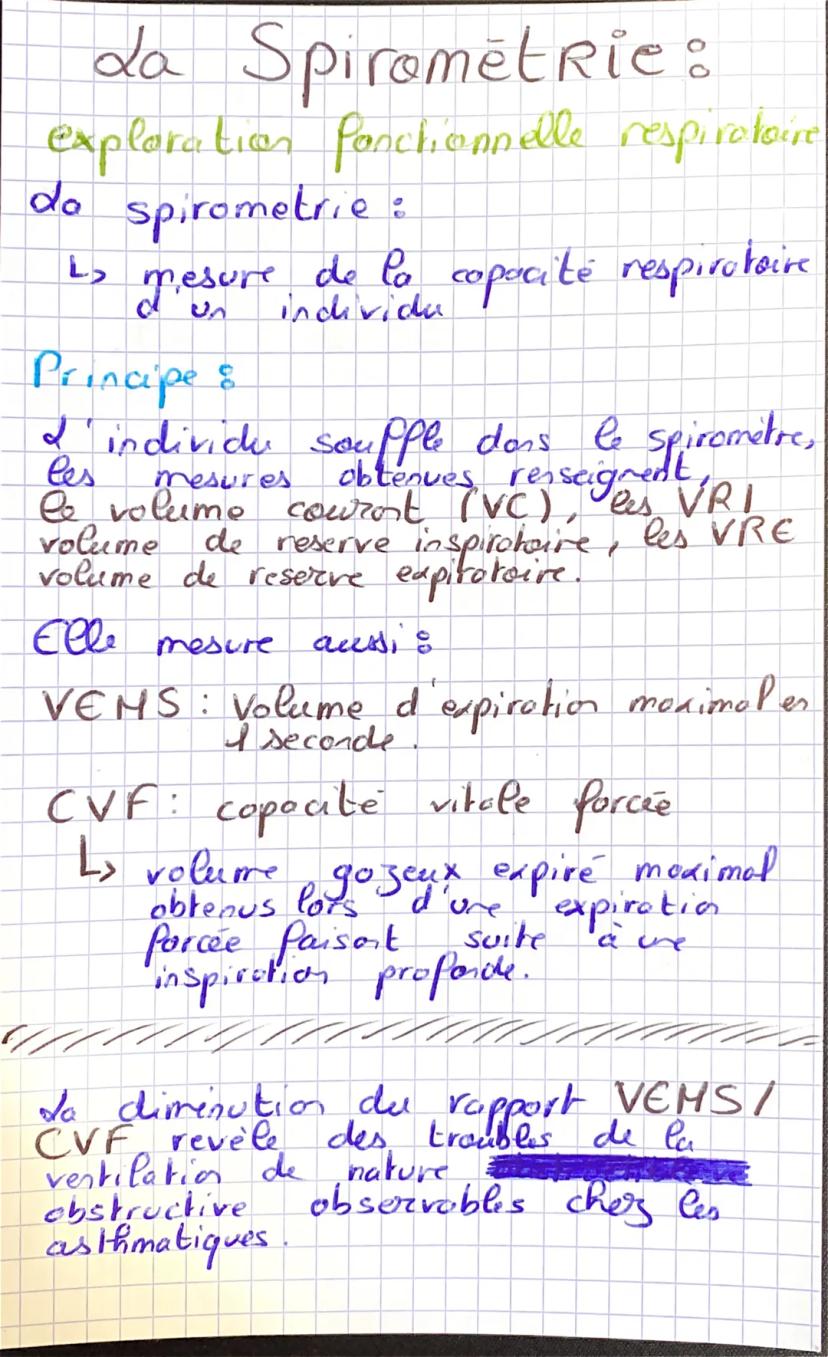 La Spirométrie :
exploration fonctionnelle respiratoire
La spirometrie :
↳ mesure de la capacité respiratoire
d'un individu
Principe :
L'individu souffle dans le spiromètre,
les mesures obtenues renseignent,
le volume courant (VC), les VRI
volume de reserve inspiratoire, les VRE
volume de reserve expiratoire.
Elle mesure aussi :
VEMS : Volume d'expiration maximal en
1 seconde.
CVF : capacité vitale forcée
↳ volume gazeux expiré maximal
obtenus lors d'une expiration
forcée faisant suite à une
inspiration profonde.
La diminution du rapport VEMS /
CVF revèle des troubles de la
ventilation de nature
obstructive observables chez les
asthmatiques.